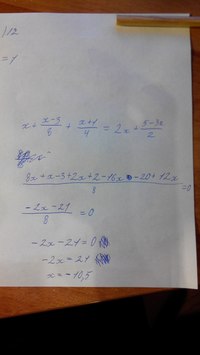 = 1
x + \frac{x-3}{8} + \frac{x+1}{4} = 2x + \frac{5-3x}{2}
\frac{8x+x-3+2x+2-16x-20+12x}{8} =0
\frac{-2x-21}{8} =0
-2x-21=0
-2x=21
x=-10,5